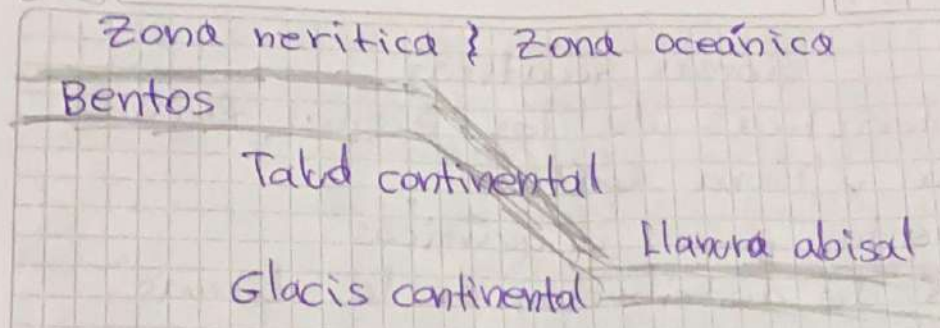 Zona neritica } Zona oceánica
Bentos
Talud continental
Llanura abisal
Glacis continental